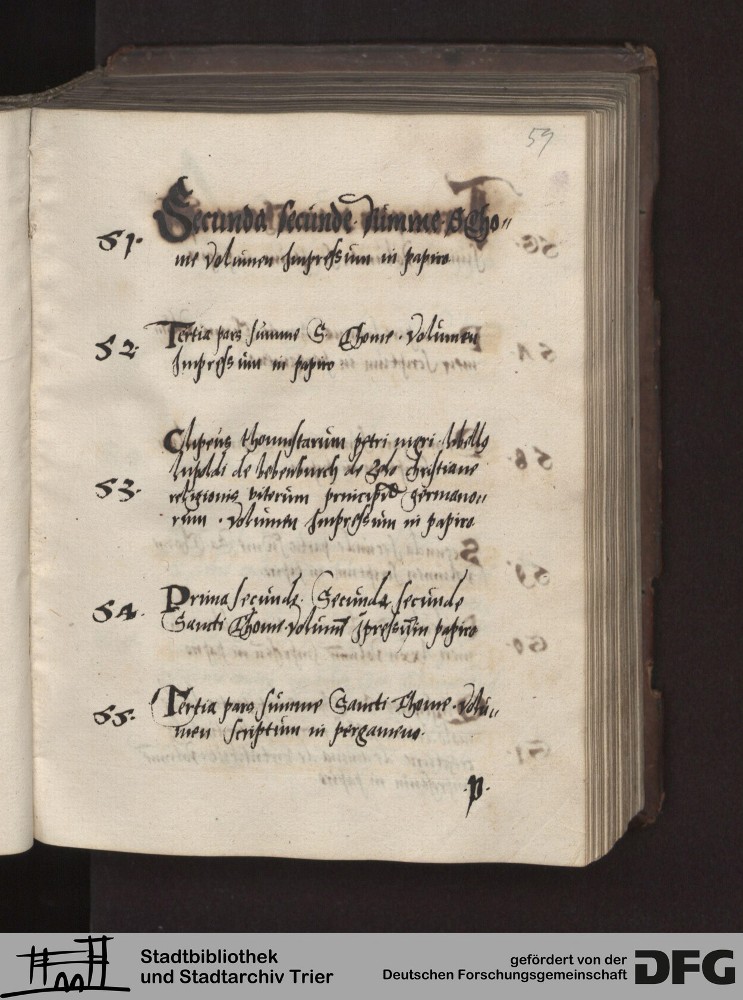 59
Secunda secunde summe S Tho〃
51. me volumen Impressum in papiro
Tertia pars summe S. Thome. Volumen
52. Impressum in papiro
Clipeus thomistarum petri nigri. libellus
lupoldi de bebenburch de Zelo christiane
53. religionis veterum principum germano〃
rum. Volumen Impressum in papiro
Prima secunde. Secunda secunde
54. Sancti Thome volum impressum papiro
Tertia pars summe Sancti Thome. Volu〃
55. men scriptum in pergameno.
.p.
Stadtbibliothek
und Stadtarchiv Trier
gefördert von der
Deutschen Forschungsgemeinschaft
DFG